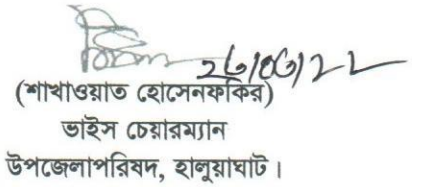 (শাখাওয়াত হোসেনফকির)
ভাইস চেয়ারম্যান
উপজেলাপরিষদ, হালুয়াঘাট।